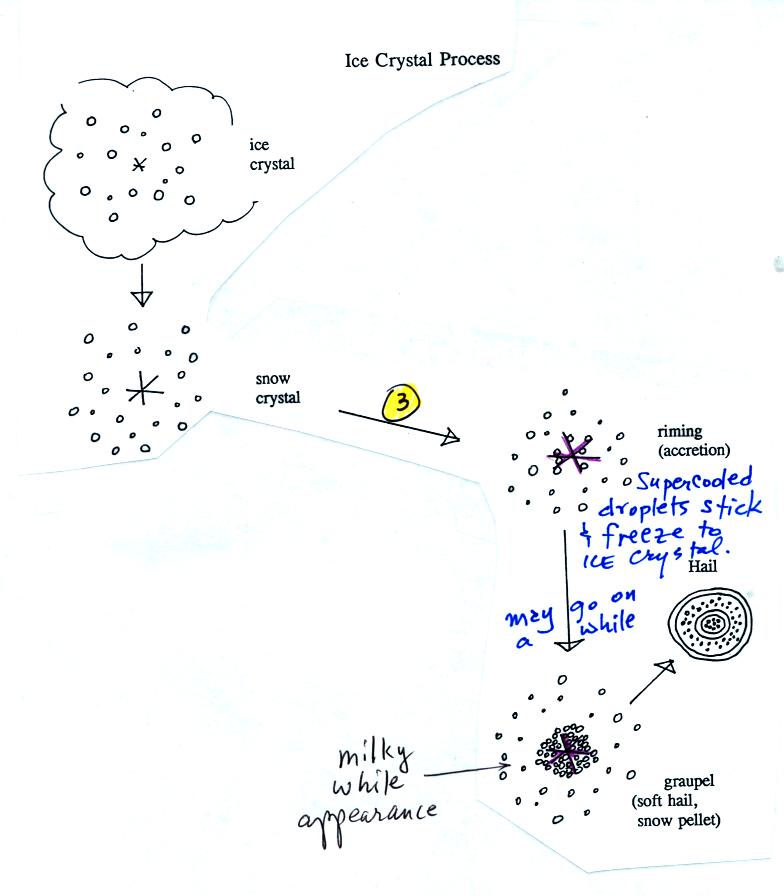 Ice Crystal Process
ice
crystal
snow
crystal
3
riming
(accretion)
Supercooled
droplets stick
& freeze to
ICE crystal.
Hail
may go on
a while
milky
while
appearance
graupel
(soft hail,
snow pellet)